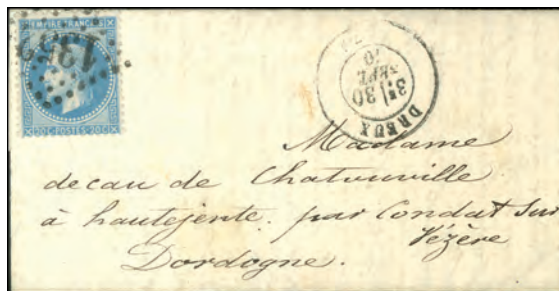 EMPIRE FRANC
20C POSTES 20C
DREUX
3E 30
SEPT.
70
Madame
decau de
à hautejente. par Condat sur
Vézère
Dordogne.